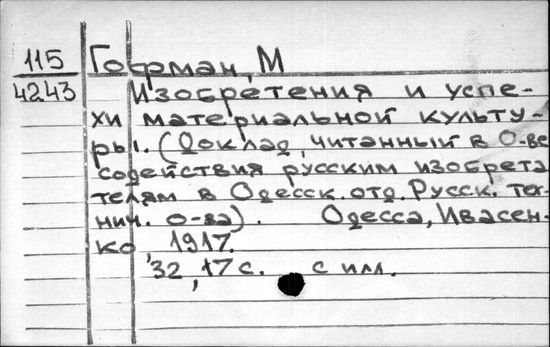 115 Гофман, М
4243 Изобретения и успе-
хи материальной культу-
ры. (Доклад, читанный в О-ве
содействия русским изобрета
телям в Одесск. отд. Русск. тех-
нич. о-ва). Одесса, Ивасен-
ко, 1917.
32, 17 с. с илл.